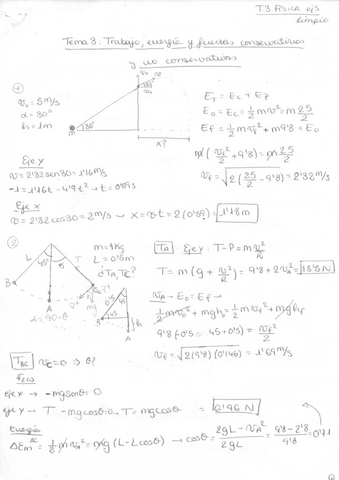 T.3 FÍSICA ejs
Limpio
Tema 3: Trabajo, energía y fuerzas conservativas
y no conservativas.
①
v₀ = 5m/s
α = 30°
h = 1m
E_T = E_C + E_P
E_0 = E_C = 1/2 m v² = m 25/2
E_f = 1/2 m v_f² + m 9'8 = E_0
m ( v_f²/2 + 9'8 ) = m 25/2
v_f = √(2 (25/2 - 9'8)) = 2'32 m/s
m 30°
x?
Eje y
v = 2'32 sen30 = 1'16 m/s
-1 = 1'16t - 4'9t² → t = 0'59s
Eje x
v = 2'32 cos30 = 2 m/s → x = v t = 2 (0'59) = 1'18m
②
m = 1kg
L = 0'5m
¿T_A T_C?
L 45
B
A
α = 90 - θ
T_A Eje y: T - P = m v²/R
T = m (g + v²/R) = 9'8 + 2v_A² = 15'5 N
v_A → E_0 = E_f →
1/2 m v_0² + m g h_0 = 1/2 m v_f² + m g h_f
9'8 (-0'5 cos 45 + 0'5) = v_f²/2
v_f = √(2(9'8)(0'146)) = 1'69 m/s
T_BC v_C = 0 → θ?
eje x → -mg senθ = 0
eje y → T - mg cosθ = 0 → T = mg cosθ = 6'96 N
Energía
ΔE_m^AC = 1/2 m v_A² = m g (L - L cosθ) → cosθ = (2gL - v_A²)/2gL = (9'8 - 2'8)/9'8 = 0'71